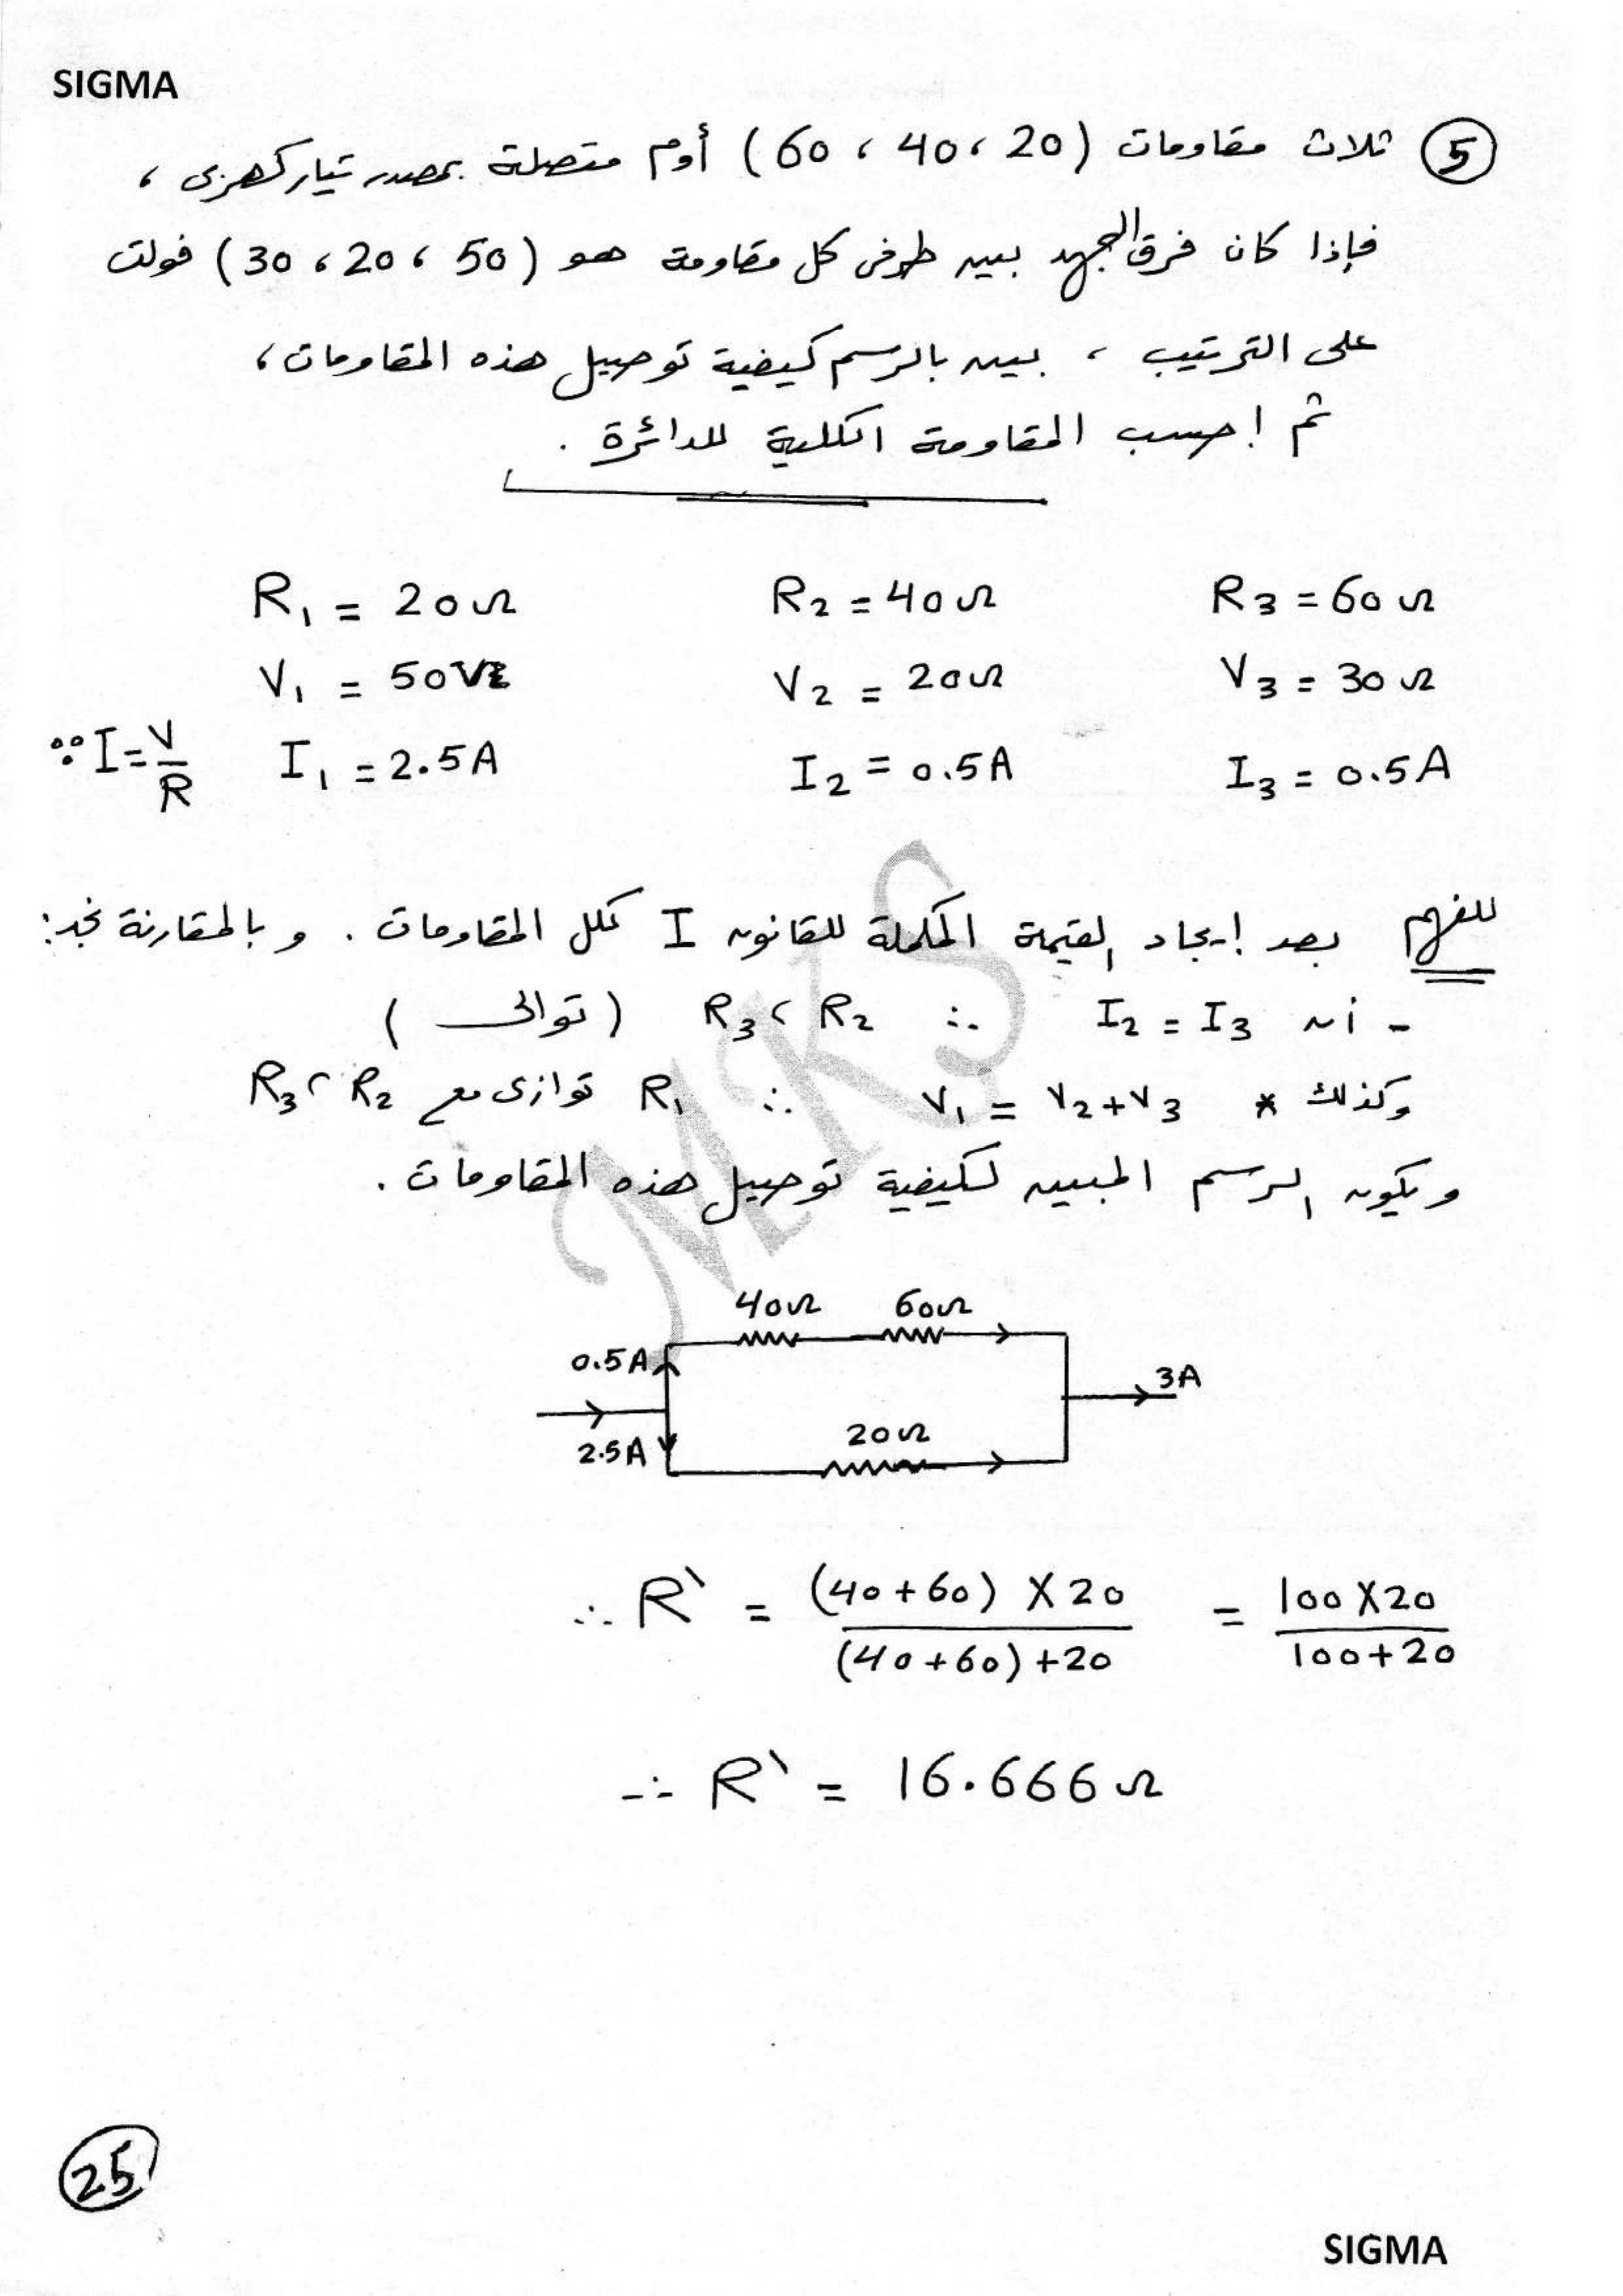 SIGMA
(5) ثلاث مقاومات (20 ، 40 ، 60) أوم متصلة بمصدر تيار كهربى ،
فإذا كان فرق الجهد بين طرفى كل مقاومة هو (50 ، 20 ، 30) فولت
على الترتيب ، بين بالرسم كيفية توصيل هذه المقاومات ،
ثم احسب المقاومة الكلية للدائرة .
R1 = 20Ω R2 = 40Ω R3 = 60Ω
V1 = 50V V2 = 20Ω V3 = 30Ω
∵ I = V/R I1 = 2.5A I2 = 0.5A I3 = 0.5A
للفهم بعد إيجاد القيمة المكملة للقانون I لكل المقاومات . و بالمقارنة نجد :
- أن I2 = I3 ∴ R2 ، R3 (توالى)
وكذلك * V1 = V2+V3 ∴ R1 توازى مع R2 ، R3
ويكون الرسم المبين لكيفية توصيل هذه المقاومات .
40Ω 60Ω
0.5A
3A
20Ω
2.5A
∴ R` = (40+60) X 20 / (40+60)+20 = 100 X 20 / 100+20
∴ R` = 16.666Ω
25
SIGMA
MKS